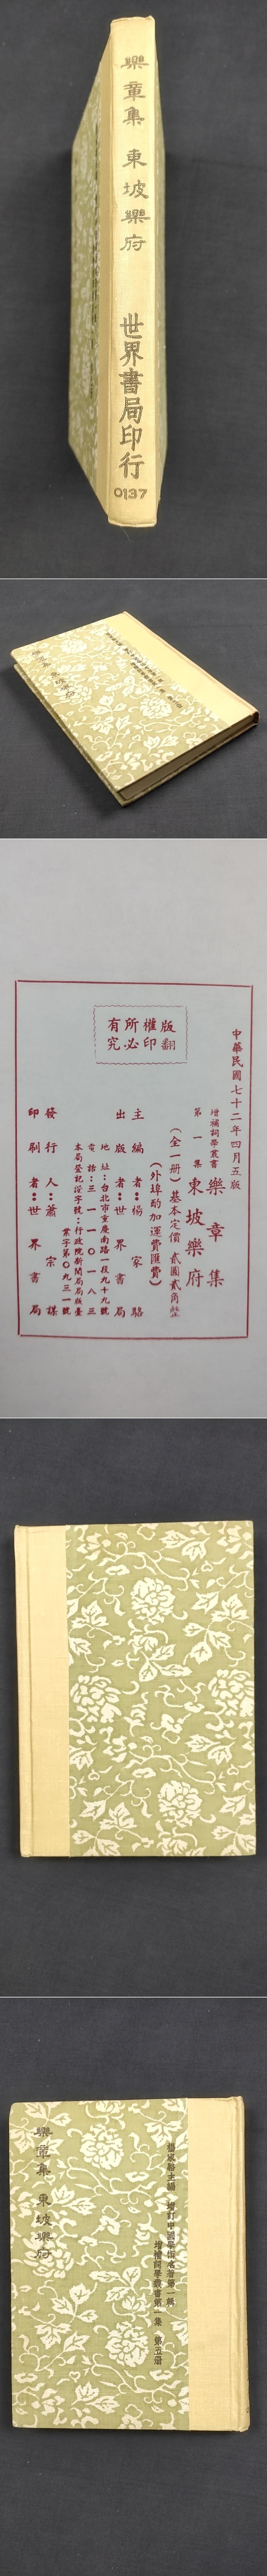 樂章集 東坡樂府
世界書局印行
0137
樂章集 東坡樂府
中華民國七十二年四月五版
增補詞學叢書
第一集
樂章集
東坡樂府
(全一册)基本定價 貳圓貳角整
(外埠酌加運費匯費)
主編者:楊家駱
出版者:世界書局
地址:台北市重慶南路一段九十九號
電話:三一一〇一八三
本局登記證字號:行政院新聞局局版臺
業字第〇九三一號
發行人:蕭宗謀
印刷者:世界書局
版權所有
翻印必究
楊家駱主編 增訂中國學術名著第一輯
增補詞學叢書第一集 第五册
樂章集 東坡樂府